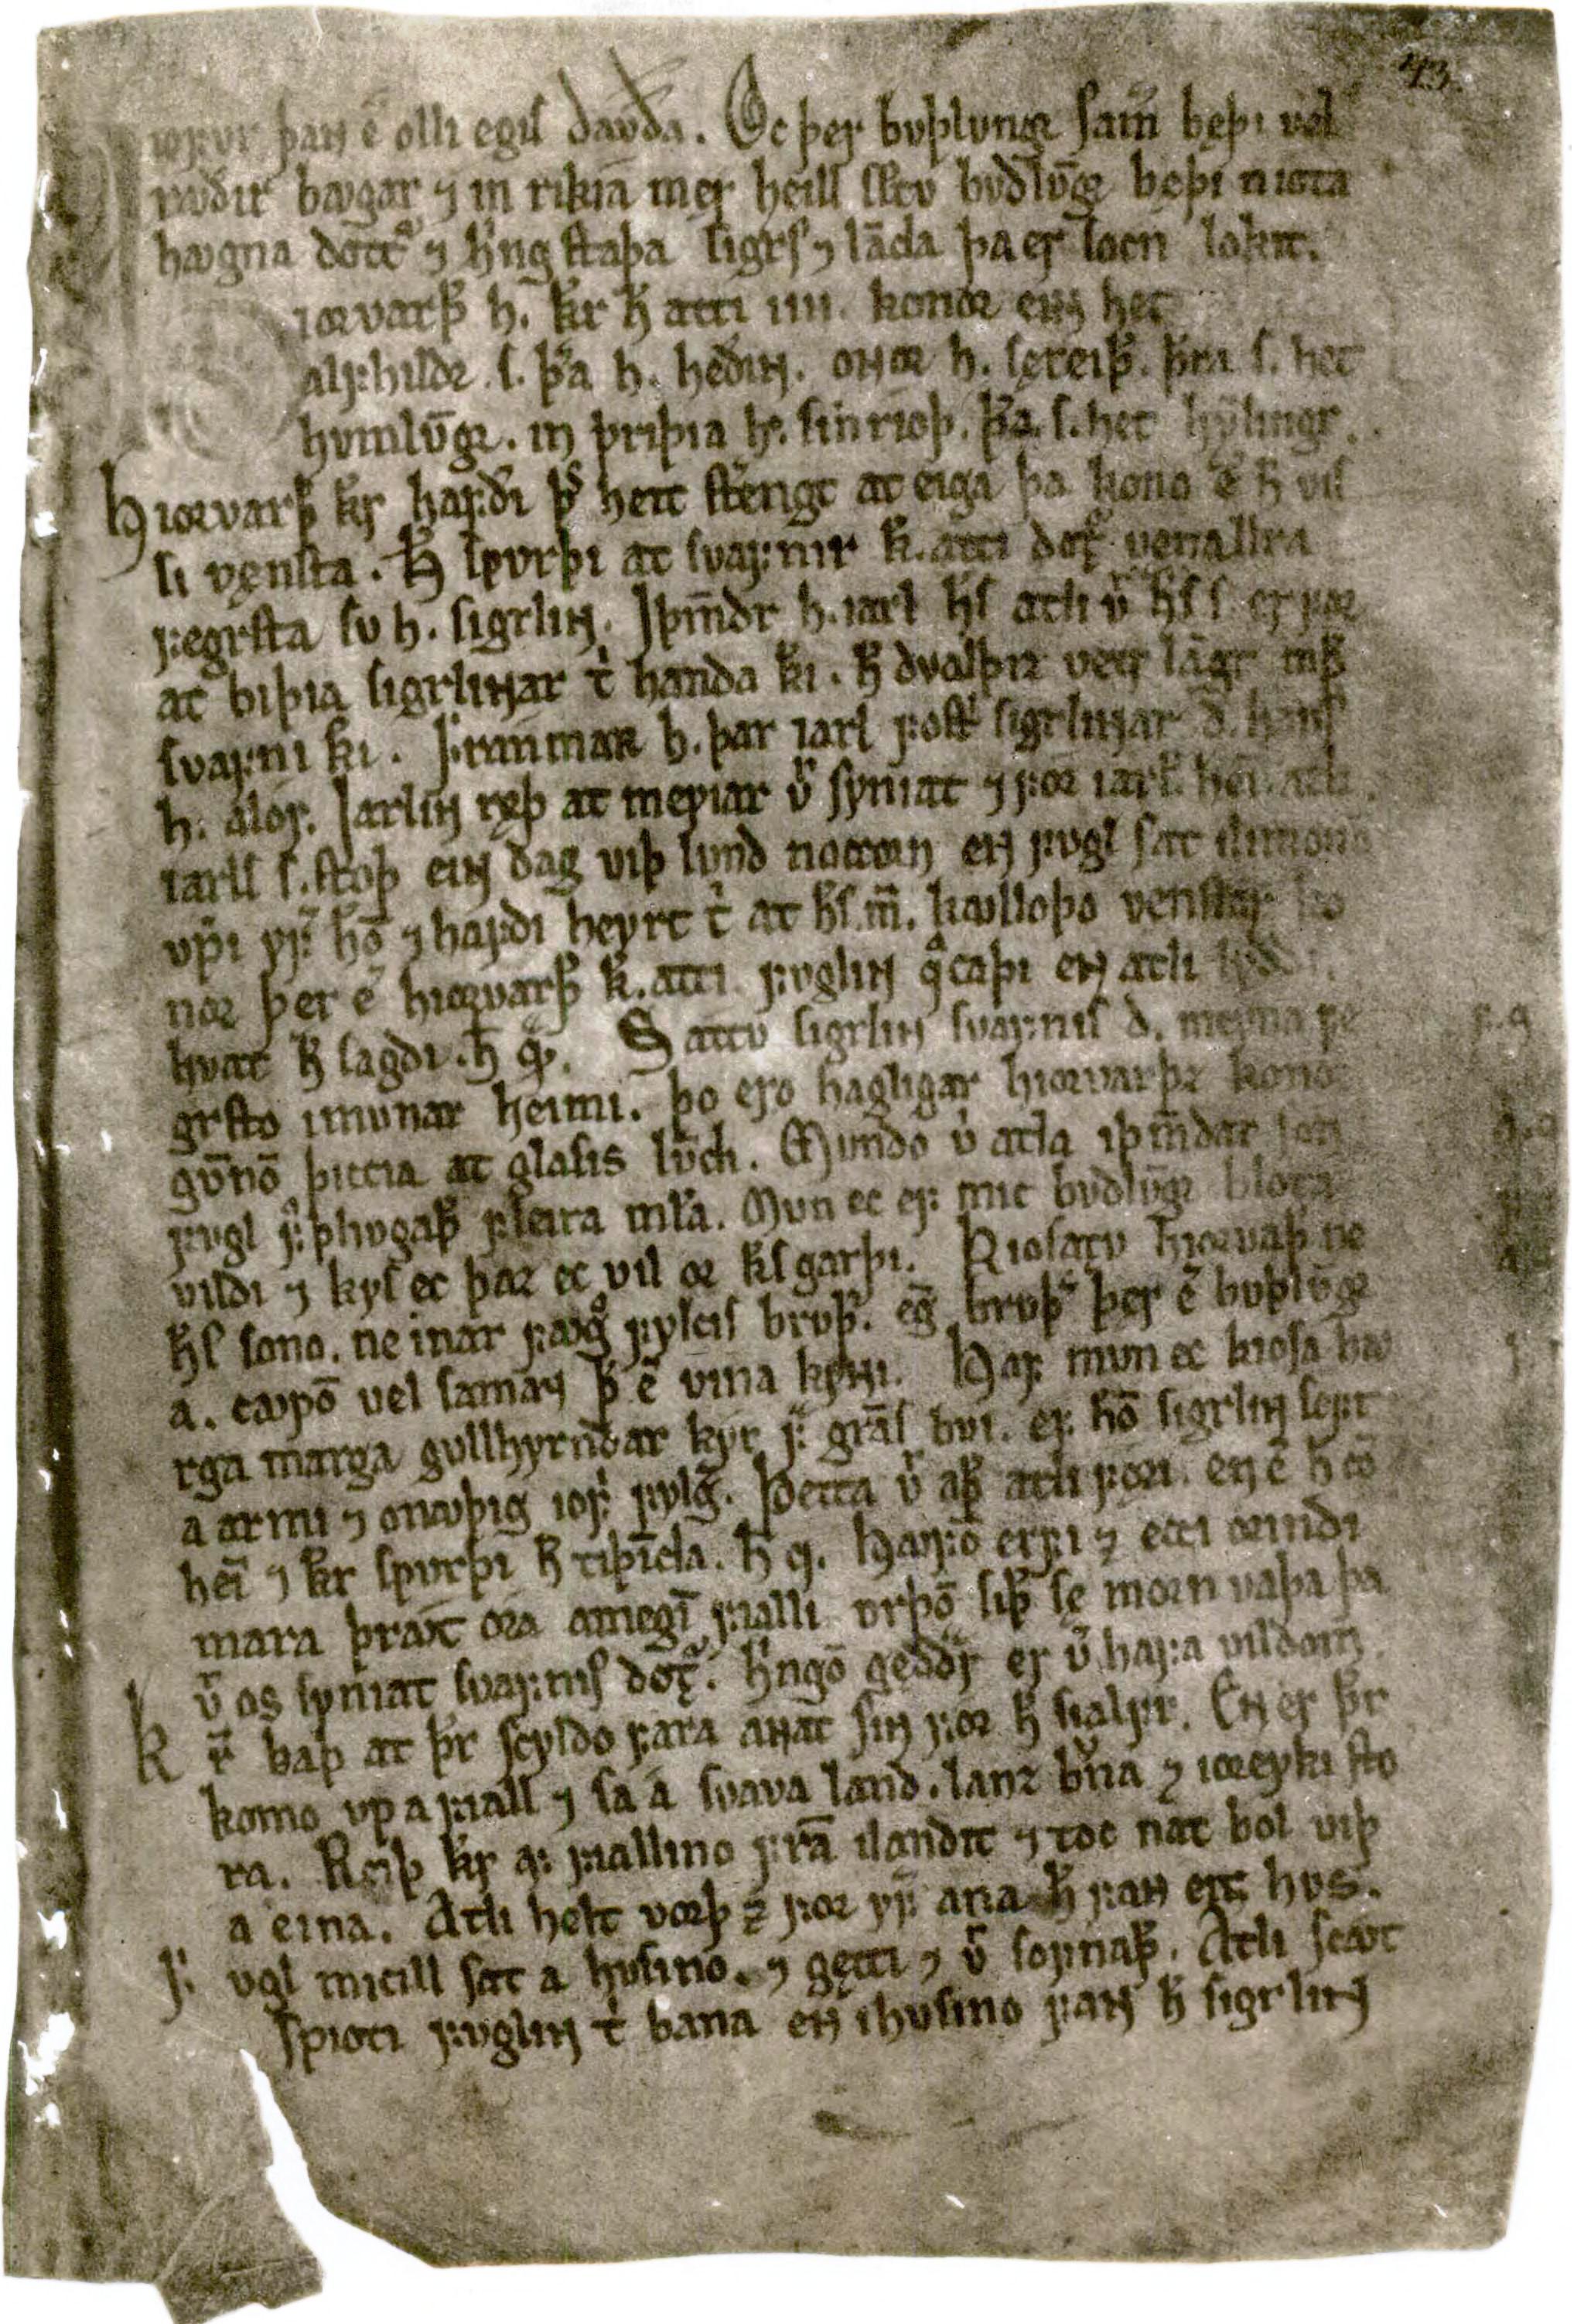 43.
iǫfur þan ē olli egis dauða. Oc þer buþlungr samir bęþi vel
rꜹðir bꜹgar ⁊ in rikia męr heill scltu buðlūgr bęþi niota
hꜹgna dottr ⁊ hringstaþa sigrs ⁊ lāda þa er socn lokit.
iorvarþr h. kr hā atti iiii. konor ein het
alfhildr. s. þra h. heðin. onnor h. sęreiþr. þrra s. het
humlūgr. in þriþia h. sinrioþ. þra. s. het hymlingr.
Hiorvarþr kr hafdi þs heit strengt at eiga þa kono ē hā vis
si vęnsta. hā spurþi at svafnir kr. atti dott vena allra
fegrsta su h. sigrlin. Iþmdr h. iarl hs atli v hs s. er for
at biþia sigrlinnar t handa ki. hā dvalþiz vetr lāgt mþ
svafni ki. Franmarr h. þar iarl fostri sigrlinnar d. hans
h. alof. Iarlin reþ at meyiar v syniat ⁊ for iarl heī. atli
iarls s. stoþ ein dag viþ lund noccorn en fugl sat ilimono
upi yf hō ⁊ hafdi heyrt t at hs m. kꜹlloþo venstar ko
nor þer ē hiorvarþr k. atti fuglin qcaþi en atli lydd
hvat hā sagdi. hā q. Sattu sigrlin svafnis d. meyna fe
grsto imunar heimi. þo ero hagligar hiorvarþz kono
gunō þiccia at glasis lūdi. Mundo v atla iþmdar son
fugl froþhugaþr fleira mla. Mun ec ef mic buðlūgr blota
vildi ⁊ kys ec þaz ec vil or ks garþi. Kiosatu hiorvarþ ne
hs sono. ne inar fꜹgr fylcis bruþ. eg bruþ þer ē buþlūgr
a. cꜹpō vel saman þ ē vina kynni. Hof mun ec kiosa hꜹ
rga marga gullhyrndar kyr f grās bui. ef hō sigrlin sefr
a armi ⁊ onꜹþig iofr fylg. Þetta v aþr atli fori. en ē hā cō
heī ⁊ kr spurþi hā tiþīda. hā q. Hofō erfi ⁊ ecci orindi
mara þraut ora meginfialli urþō siþ sę morn vaþa þa
v os syniat svafnis dott. hringō gędd er v hafa vildom.
Kr baþ at þr scyldo fara anat sin for hā sialfr. En er þr
komo upa fiall ⁊ sa a svava land. lanz bruna ⁊ ioreyki sto
ra. Reiþ kr af fiallino frā ilandit ⁊ toc nat bol viþ
a eina. Atli helt vorþ ⁊ for yf ana hā fan eitt hus.
Fugl micill sat a husino. ⁊ gętti ⁊ v sofnaþr. Atli scꜹt
spioti fuglin t bana en ihusino fan hā sigrlin